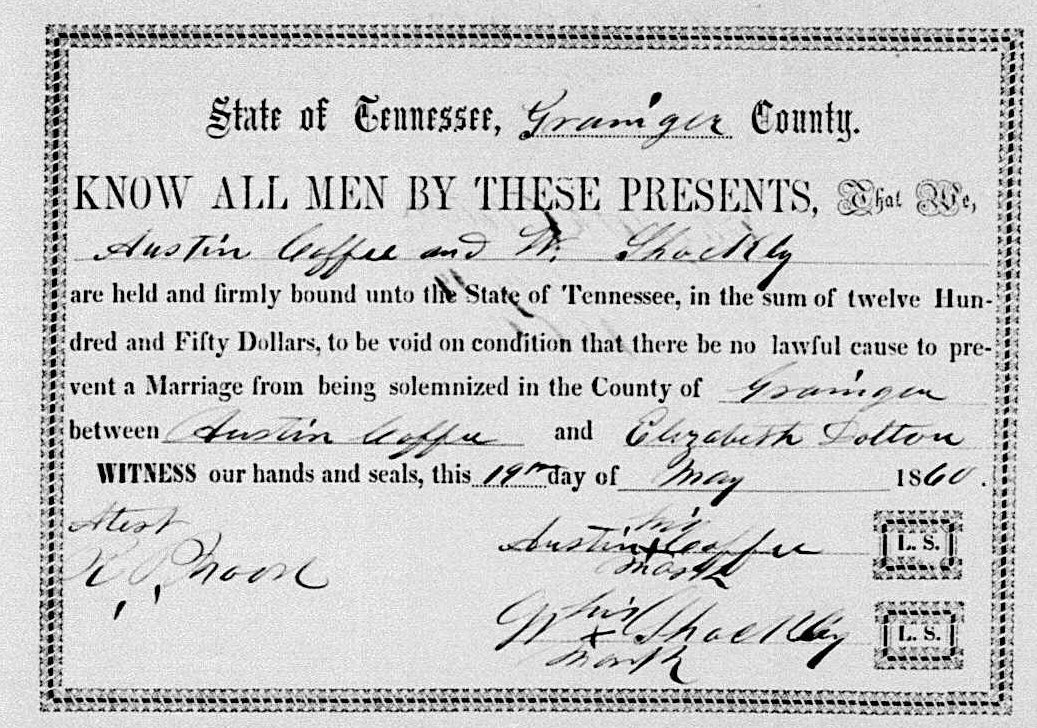 State of Tennessee, Grainger County.
KNOW ALL MEN BY THESE PRESENTS, That We,
Austin Coffee and W. Shockly
are held and firmly bound unto the State of Tennessee, in the sum of twelve Hun-
dred and Fifty Dollars, to be void on condition that there be no lawful cause to pre-
vent a Marriage from being solemnized in the County of Grainger
between Austin Coffee and Elizabeth Dolton
WITNESS our hands and seals, this 19th day of May 1860.
Attest
his
Austin x Coffee L. S.
mark
his
W x Shockley L. S.
mark